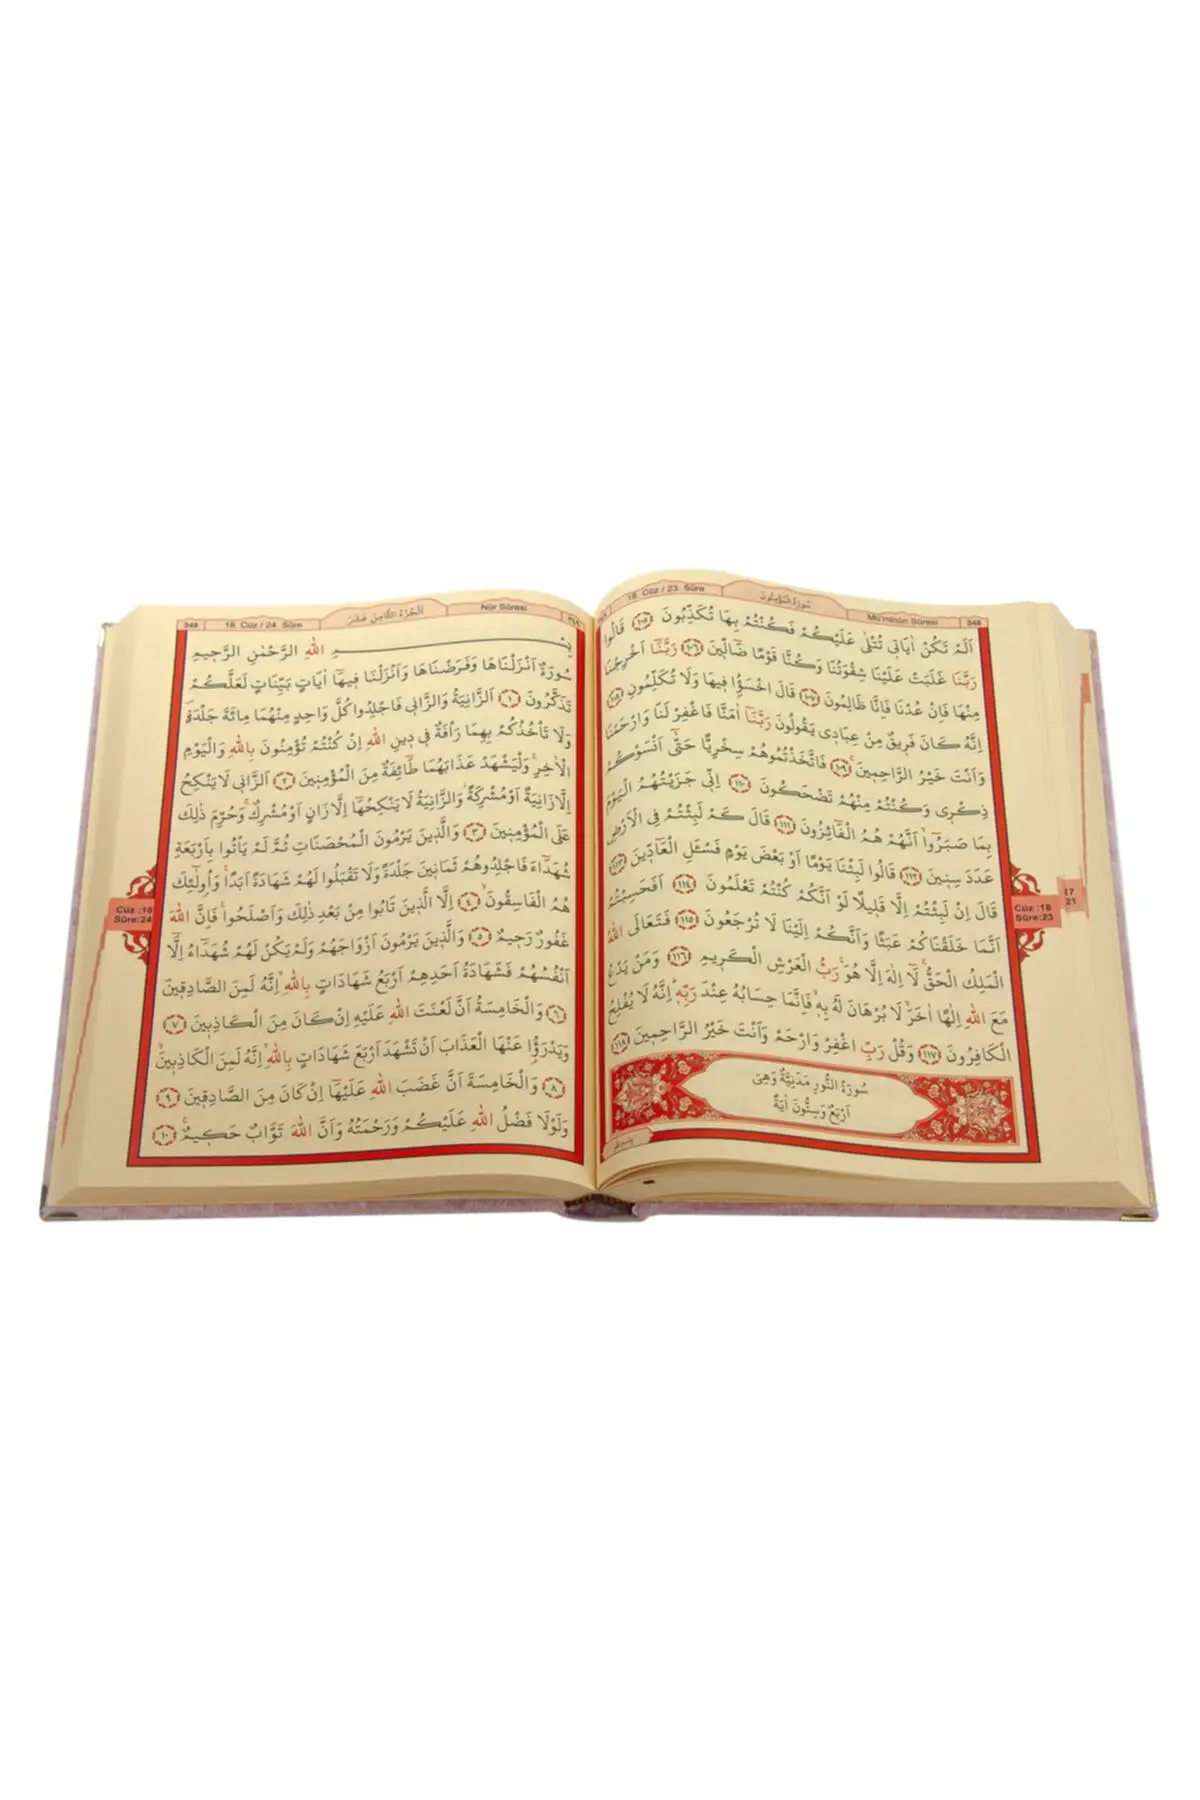 348
Mü'minûn Sûresi
سُورَةُ الْمُؤْمِنُونَ
18. Cüz / 23. Sûre
اَلَمْ تَكُنْ اٰيَات۪ي تُتْلٰى عَلَيْكُمْ فَكُنْتُمْ بِهَا تُكَذِّبُونَ ﴿١٠٥﴾ قَالُوا
رَبَّنَا غَلَبَتْ عَلَيْنَا شِقْوَتُنَا وَكُنَّا قَوْمًا ضَٓالّ۪ينَ ﴿١٠٦﴾ رَبَّنَٓا اَخْرِجْنَا
مِنْهَا فَاِنْ عُدْنَا فَاِنَّا ظَالِمُونَ ﴿١٠٧﴾ قَالَ اخْسَؤُ۫ا ف۪يهَا وَلَا تُكَلِّمُونِ ﴿١٠٨﴾
اِنَّهُ كَانَ فَر۪يقٌ مِنْ عِبَاد۪ي يَقُولُونَ رَبَّنَٓا اٰمَنَّا فَاغْفِرْ لَنَا وَارْحَمْنَا
وَاَنْتَ خَيْرُ الرَّاحِم۪ينَۚ ﴿١٠٩﴾ فَاتَّخَذْتُمُوهُمْ سِخْرِيًّا حَتّٰٓى اَنْسَوْكُمْ
ذِكْر۪ي وَكُنْتُمْ مِنْهُمْ تَضْحَكُونَ ﴿١١٠﴾ اِنّ۪ي جَزَيْتُهُمُ الْيَوْمَ
بِمَا صَبَرُٓوا اَنَّهُمْ هُمُ الْفَٓائِزُونَ ﴿١١١﴾ قَالَ كَمْ لَبِثْتُمْ فِي الْاَرْضِ
عَدَدَ سِن۪ينَ ﴿١١٢﴾ قَالُوا لَبِثْنَا يَوْمًا اَوْ بَعْضَ يَوْمٍ فَسْـَٔلِ الْعَٓادّ۪ينَ ﴿١١٣﴾
قَالَ اِنْ لَبِثْتُمْ اِلَّا قَل۪يلًا لَوْ اَنَّكُمْ كُنْتُمْ تَعْلَمُونَ ﴿١١٤﴾ اَفَحَسِبْتُمْ
اَنَّمَا خَلَقْنَاكُمْ عَبَثًا وَاَنَّكُمْ اِلَيْنَا لَا تُرْجَعُونَ ﴿١١٥﴾ فَتَعَالَى اللّٰهُ
الْمَلِكُ الْحَقُّۚ لَٓا اِلٰهَ اِلَّا هُوَۚ رَبُّ الْعَرْشِ الْكَر۪يمِ ﴿١١٦﴾ وَمَنْ يَدْعُ
مَعَ اللّٰهِ اِلٰهًا اٰخَرَۙ لَا بُرْهَانَ لَهُ بِه۪ۙ فَاِنَّمَا حِسَابُهُ عِنْدَ رَبِّه۪ۜ اِنَّهُ لَا يُفْلِحُ
الْكَافِرُونَ ﴿١١٧﴾ وَقُلْ رَبِّ اغْفِرْ وَارْحَمْ وَاَنْتَ خَيْرُ الرَّاحِم۪ينَ ﴿١١٨﴾
سُورَةُ النُّورِ مَدَنِيَّةٌ وَهِيَ
اَرْبَعٌ وَسِتُّونَ اٰيَةً
Cüz :18
Sûre:23
17
21
Nûr Sûresi
اَلْجُزْءُ الثَّامِنَ عَشَرَ
18. Cüz / 24. Sûre
349
بِسْمِ اللّٰهِ الرَّحْمٰنِ الرَّح۪يمِ
سُورَةٌ اَنْزَلْنَاهَا وَفَرَضْنَاهَا وَاَنْزَلْنَا ف۪يهَٓا اٰيَاتٍ بَيِّنَاتٍ لَعَلَّكُمْ
تَذَكَّرُونَ ﴿١﴾ اَلزَّانِيَةُ وَالزَّان۪ي فَاجْلِدُوا كُلَّ وَاحِدٍ مِنْهُمَا مِائَةَ جَلْدَةٍۖ
وَلَا تَأْخُذْكُمْ بِهِمَا رَأْفَةٌ ف۪ي د۪ينِ اللّٰهِ اِنْ كُنْتُمْ تُؤْمِنُونَ بِاللّٰهِ وَالْيَوْمِ
الْاٰخِرِۚ وَلْيَشْهَدْ عَذَابَهُمَا طَٓائِفَةٌ مِنَ الْمُؤْمِن۪ينَ ﴿٢﴾ اَلزَّان۪ي لَا يَنْكِحُ
اِلَّا زَانِيَةً اَوْ مُشْرِكَةًۘ وَالزَّانِيَةُ لَا يَنْكِحُهَٓا اِلَّا زَانٍ اَوْ مُشْرِكٌۚ وَحُرِّمَ ذٰلِكَ
عَلَى الْمُؤْمِن۪ينَ ﴿٣﴾ وَالَّذ۪ينَ يَرْمُونَ الْمُحْصَنَاتِ ثُمَّ لَمْ يَأْتُوا بِاَرْبَعَةِ
شُهَدَٓاءَ فَاجْلِدُوهُمْ ثَمَان۪ينَ جَلْدَةً وَلَا تَقْبَلُوا لَهُمْ شَهَادَةً اَبَدًاۚ وَاُو۬لٰٓئِكَ
هُمُ الْفَاسِقُونَۙ ﴿٤﴾ اِلَّا الَّذ۪ينَ تَابُوا مِنْ بَعْدِ ذٰلِكَ وَاَصْلَحُواۚ فَاِنَّ اللّٰهَ
غَفُورٌ رَح۪يمٌ ﴿٥﴾ وَالَّذ۪ينَ يَرْمُونَ اَزْوَاجَهُمْ وَلَمْ يَكُنْ لَهُمْ شُهَدَٓاءُ اِلَّٓا
اَنْفُسُهُمْ فَشَهَادَةُ اَحَدِهِمْ اَرْبَعُ شَهَادَاتٍ بِاللّٰهِۙ اِنَّهُ لَمِنَ الصَّادِق۪ينَ
﴿٦﴾ وَالْخَامِسَةُ اَنَّ لَعْنَتَ اللّٰهِ عَلَيْهِ اِنْ كَانَ مِنَ الْكَاذِب۪ينَ ﴿٧﴾
وَيَدْرَؤُ۬ا عَنْهَا الْعَذَابَ اَنْ تَشْهَدَ اَرْبَعَ شَهَادَاتٍ بِاللّٰهِۙ اِنَّهُ لَمِنَ الْكَاذِب۪ينَۙ
﴿٨﴾ وَالْخَامِسَةَ اَنَّ غَضَبَ اللّٰهِ عَلَيْهَٓا اِنْ كَانَ مِنَ الصَّادِق۪ينَ ﴿٩﴾
وَلَوْلَا فَضْلُ اللّٰهِ عَلَيْكُمْ وَرَحْمَتُهُ وَاَنَّ اللّٰهَ تَوَّابٌ حَك۪يمٌ۟ ﴿١٠﴾
Cüz :18
Sûre:24